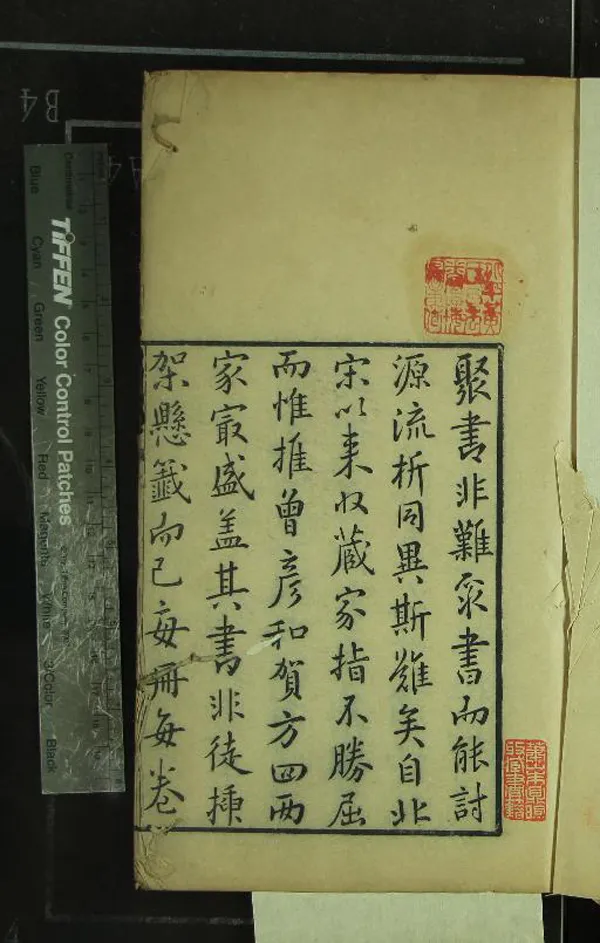 聚書非難聚書而能討
源流析同異斯難矣自北
宋以来收藏家指不勝屈
而惟推曾彦和賀方回两
家㝡盛盖其書非徒揷
架懸籤而已每冊每卷
B4
A4
TIFFEN Color Control Patches
Blue
Cyan
Green
Yellow
Red
Magenta
White
3/Color
Black